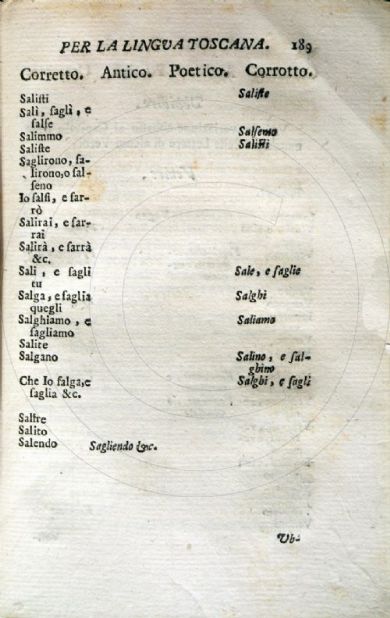 PER LA LINGVA TOSCANA. 189
Corretto. Antico. Poetico. Corrotto.
Salisti Saliste
Salì, saglì, e
salse
Salimmo Salsemo
Saliste Salisti
Saglirono, sa-
lirono, o sal-
seno
Io salsi, e sar-
rò
Salirai, e sar-
rai
Salirà, e sarrà
&c.
Sali, e sagli Sale, e saglie
tu
Salga, e saglia Salghi
quegli
Salghiamo, e Saliamo
sagliamo
Salite
Salgano Salino, e sal-
ghino
Che Io salga, e Salghi, e sagli
saglia &c.
Salire
Salito
Salendo Sagliendo &c.
Vb-